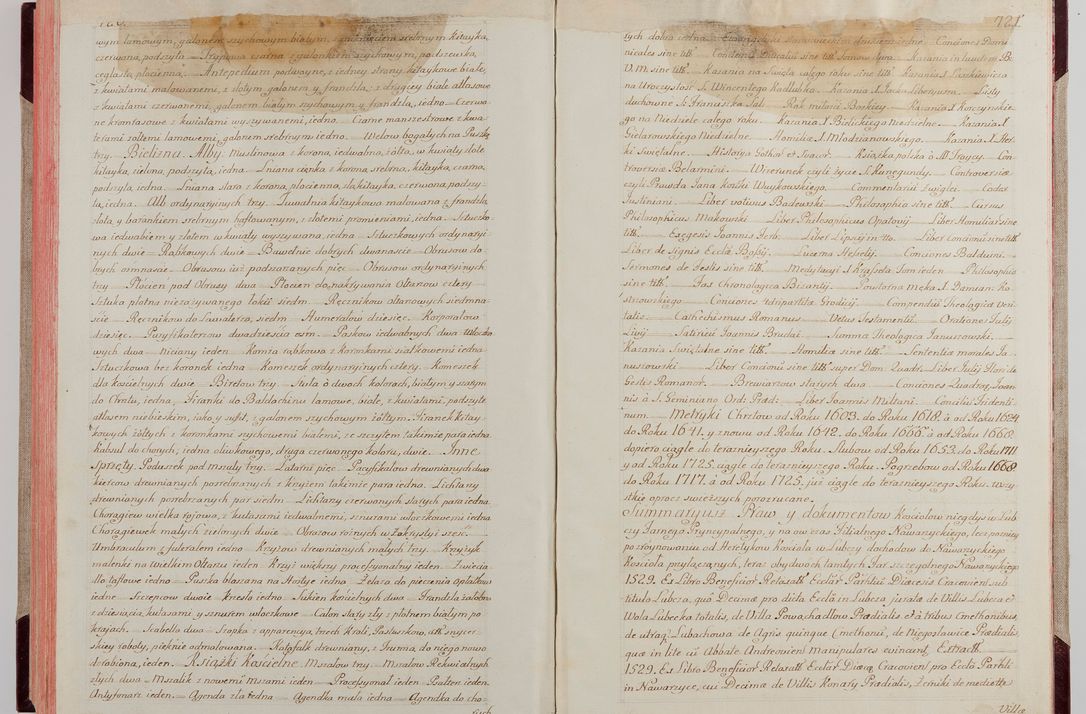 720.
wym lamowym, galonem szychowym białym, z podszyciem srebrnym kitayka,
czerwana, podszyta. Stuppowa czarna z galonkiem szychowym, podszewka
ceglasta, płocienna. Antepedium podwoyne, z iedney strony kitaykowe białe,
z kwiatami malowanemi, z złotym galonem y frandzlą, z drugiey białe atłasowe
z kwiatami czerwonemi, galonem białym szychowym, y frandzlą, iedno. Czerwo-
ne krontasowe z kwiatami wyszywanemi, iedno. Ciarne manszestrowe z kwa-
terami żółtemi lamowemi, galonem srebrnym iedno. Welow bogatych na Puszkę
trzy. Bielizna. Alby. Muslinowa z koroną, iedwabna, żółta, w kwiaty złote
kitayka, zielona, podszyta, iedna. Lniana cienka z koroną srebrna, kitayka, czarna,
podszyta, iedna. Lniana stara z koroną, płocienna, zła, kitayka, czerwona, podszy-
ta, iedna. Alb ordynaryinych trzy. Tuwalnia kitaykowa malowana z frandzlą
złotą, y barankiem srebrnym haftowanym, z złotemi promieniami, iedna. Sztuczko-
wa iedwabiem y złotem w kwiaty wyszywana, iedna. Sztuczkowych ordynaryi-
nych dwie. Rąbkowych dwie. Bawełnic dobrych dwanascie. Obrusow do-
brych ośmnascie. Obrusow iuż podszarzanych pięć. Obrusow ordynaryinych
trzy. Płocien pod Obrusy dwa. Płocien do nakrywania Ołtarzow cztery.
Sztuka płotna niezażywanego łokći siedm. Ręcznikow ołtarzowych siedmna-
scie. Ręcznikow do Lawaterza, siedm. Humerałow dziesięć. Korporałow
dziesięć. Puryfikaterzow dwadziescia ośm. Paskow iedwabnych dwa. Włoczko-
wych dwa. Niciany ieden. Komża rąbkowa z koronkami siatkowemi iedna.
Sztuczkowa bez koronek iedna. Komeszek ordynaryinych cztery. Komeszek
dla koscielnych dwie. Biretow trzy. Stuła o dwoch kolorach, białym y szarym
do Chrztu, iedna. Firanki do Baldachinu lamowe, białe, z kwiatami, podszyte
atłasem niebieskim, tako y sufit, z galonem szychowym żółtym. Firanek kitay-
kowych żółtych, z koronkami szychowemi białemi, ze szczytem takimże para iedna
Kabsul do chorych, iedna oliwkowego, druga czerwonego koloru, dwie. Inne
Sprzęty. Poduszek pod mszały trzy. Latarń pięć. Pacyfikałow drewnianych dwa
kielcow drewnianych posrebrzanych z krzyżem takimże para iedna. Lichtarzy
drewnianych posrebrzanych par siedm. Lichtarzy czerwonych starych para iedna
Chorągiew wielka rożowa, z kutasami iedwabnemi, sznurami włoczkowemi iedna
Chorągiewek małych zielonych dwie. Obrazow rożnych w Zakrystyi szesć.
Umbraculum z futerałem iedno. Krzyżow drewnianych małych trzy. Krzyżyk
maleńki na wielkim Ołtarzu ieden. Krzyż większy processyonalny ieden. Zwiercia-
dło taflowe iedno. Puszka blaszana na Hostye iedna. Żelaza do pieczenia opłatkow
iedne. Szczypcow dwoie. Krzesło iedno. Sukien koscielnych dwa. Frandzla żałobna
z dziesiącią kutasami y sznurem włoczkowe. Całun stary zły z płotnem białym po
krajach. Scabella dwa. Szopka z apparencyą, trzech Kroli, Pastuszkow, etc. snycer-
skiey roboty, pięknie odmalowana. Katafalk drewniany, z Truną do niego nowo
dorobioną, ieden. Książki Koscielne. Mszałow trzy. Mszałow Rekwialnych
złych dwa. Mszalik z nowemi Mszami ieden. Processyonał ieden. Psałterz ieden.
Antyfonarz ieden. Agenda zła iedna. Agendka mała iedna. Agendka do cho-
rych
721.
nicales sine titt. Kazania in laudem B:
V. M. sine titt. Kazania na Swięta całego roku sine titt. Kazania X Laszkiewicza
na Uroczystość S. Wincentego Kadłubka. Kazania X. Jacka Liberyusza. Listy
duchowne S. Franciszka Sal: Rok miłości Boskiey. Kazania X. Korczyńskie-
go na Niedziele całego roku. Kazania X. Bielickiego Niedzielne. Kazania X.
Gielarowskiego Niedzielne. Homilie X. Młodzianowskiego. Kazania X. Her-
ki Swiętalne. Historya Gotha: et Suecor: Książka polska o SS. Troycy. Con-
troversiæ Belarmini. Wizerunek czyli życie S. Kunegundy. Controversiæ
czyli Prawda Jana Końki Wuykowskiego. Commentarii Zwiglei. Codex
Justiniani. Liber votivus Badewski. Philosophia sine titt. Cursus
Philosophicus Makowski. Liber Philosophicus Opatovij. Liber Homiliar: sine
titt. Exegesis Joannis Ferb: Liber Lipsij in 4to. Liber Concionũ sine titt
Liber de Signis Ecclæ Bossij. Lucerna Helvety. Conciones Balduini.
Sermones de Festis sine titt. Medytacyi X Krafseta Tom ieden. Philosophia
sine titt. Fax Chronologica Bizantij. Powtorna Męka X. Damian: Ko-
strowskiego. Conciones 4dripartitæ Grodicij. Compendiũ Theologicæ veri-
tatis. Cathechismus Romanus. Vetus Testamentũ. Orationes Julij
Livij. Satirici Joannis Brudei. Summa Theologica Januszowski.
Kazania Swiętalne sine titt. Homilia sine titt. Sententia morales Ja-
nuszowski. Liber Concionũ sine titt. super Dom: Quadr: Liber Julij Flori de
Gestis Romanor: Brewiarzow starych dwa. Conciones Quadrag: Joan-
nis a S. Geminiano Ord: Præd: Liber Joannis Miltzani. Conciliũ Tridenti-
num. Metryki Chrztow od Roku 1603. do Roku 1618. a od Roku 1624
do Roku 1641. y znowu od Roku 1642. do Roku 1666. a od Roku 1668
dopiero ciągle do teraznieyszego Roku. Slubow od Roku 1653. do Roku 1711
y od Roku 1725. ciągle do teraznieyszego Roku. Pogrzebow od Roku 1668
do Roku 1717. a od Roku 1725. już ciągle do teraznieyszego Roku. Wszy-
stkie oprocz swieższych porozrucane.
Summaryusz Praw y dokumentow Kościołow niegdyś w Lub-
czy Farnego Pryncypalnego, y na ow czas Filialnego Nawarzyckiego, lecz poźniey
po zrôynowaniu od Heretykow Kościoła w Lubczy dochodow do Nawarzyckiego
Kościoła przyłączonych, teraz obydwoch tamtych Far szczegolnego Nawarzyckiego
1529. Ex Libro Beneficior: Retaxatt: Ecclæ Parttij Diæcesis Cracovien: sub
titulo Lubcza, quâ Decimæ pro dicta Ecclâ in Lubcza juratæ de Villis Lubcza et
Wola Lubecka totalis, de Villa Powachadłow Prædialis et â tribus Cmethonibus,
de utraq: Lubachowa de Agris quinque Cmethonũ, de Niegosławice Prædialis
quæ in lite cũ Abbate Andreovien: manipulares evincant, Extractt:
1529. Ex Libro Beneficior: Retaxatt: Ecclar: Diæces: Cracovien: pro Ecclâ Partili
in Nawarzyce, cui Decima de Villis Konary Prædialis, Zerniki de medietate
Villæ